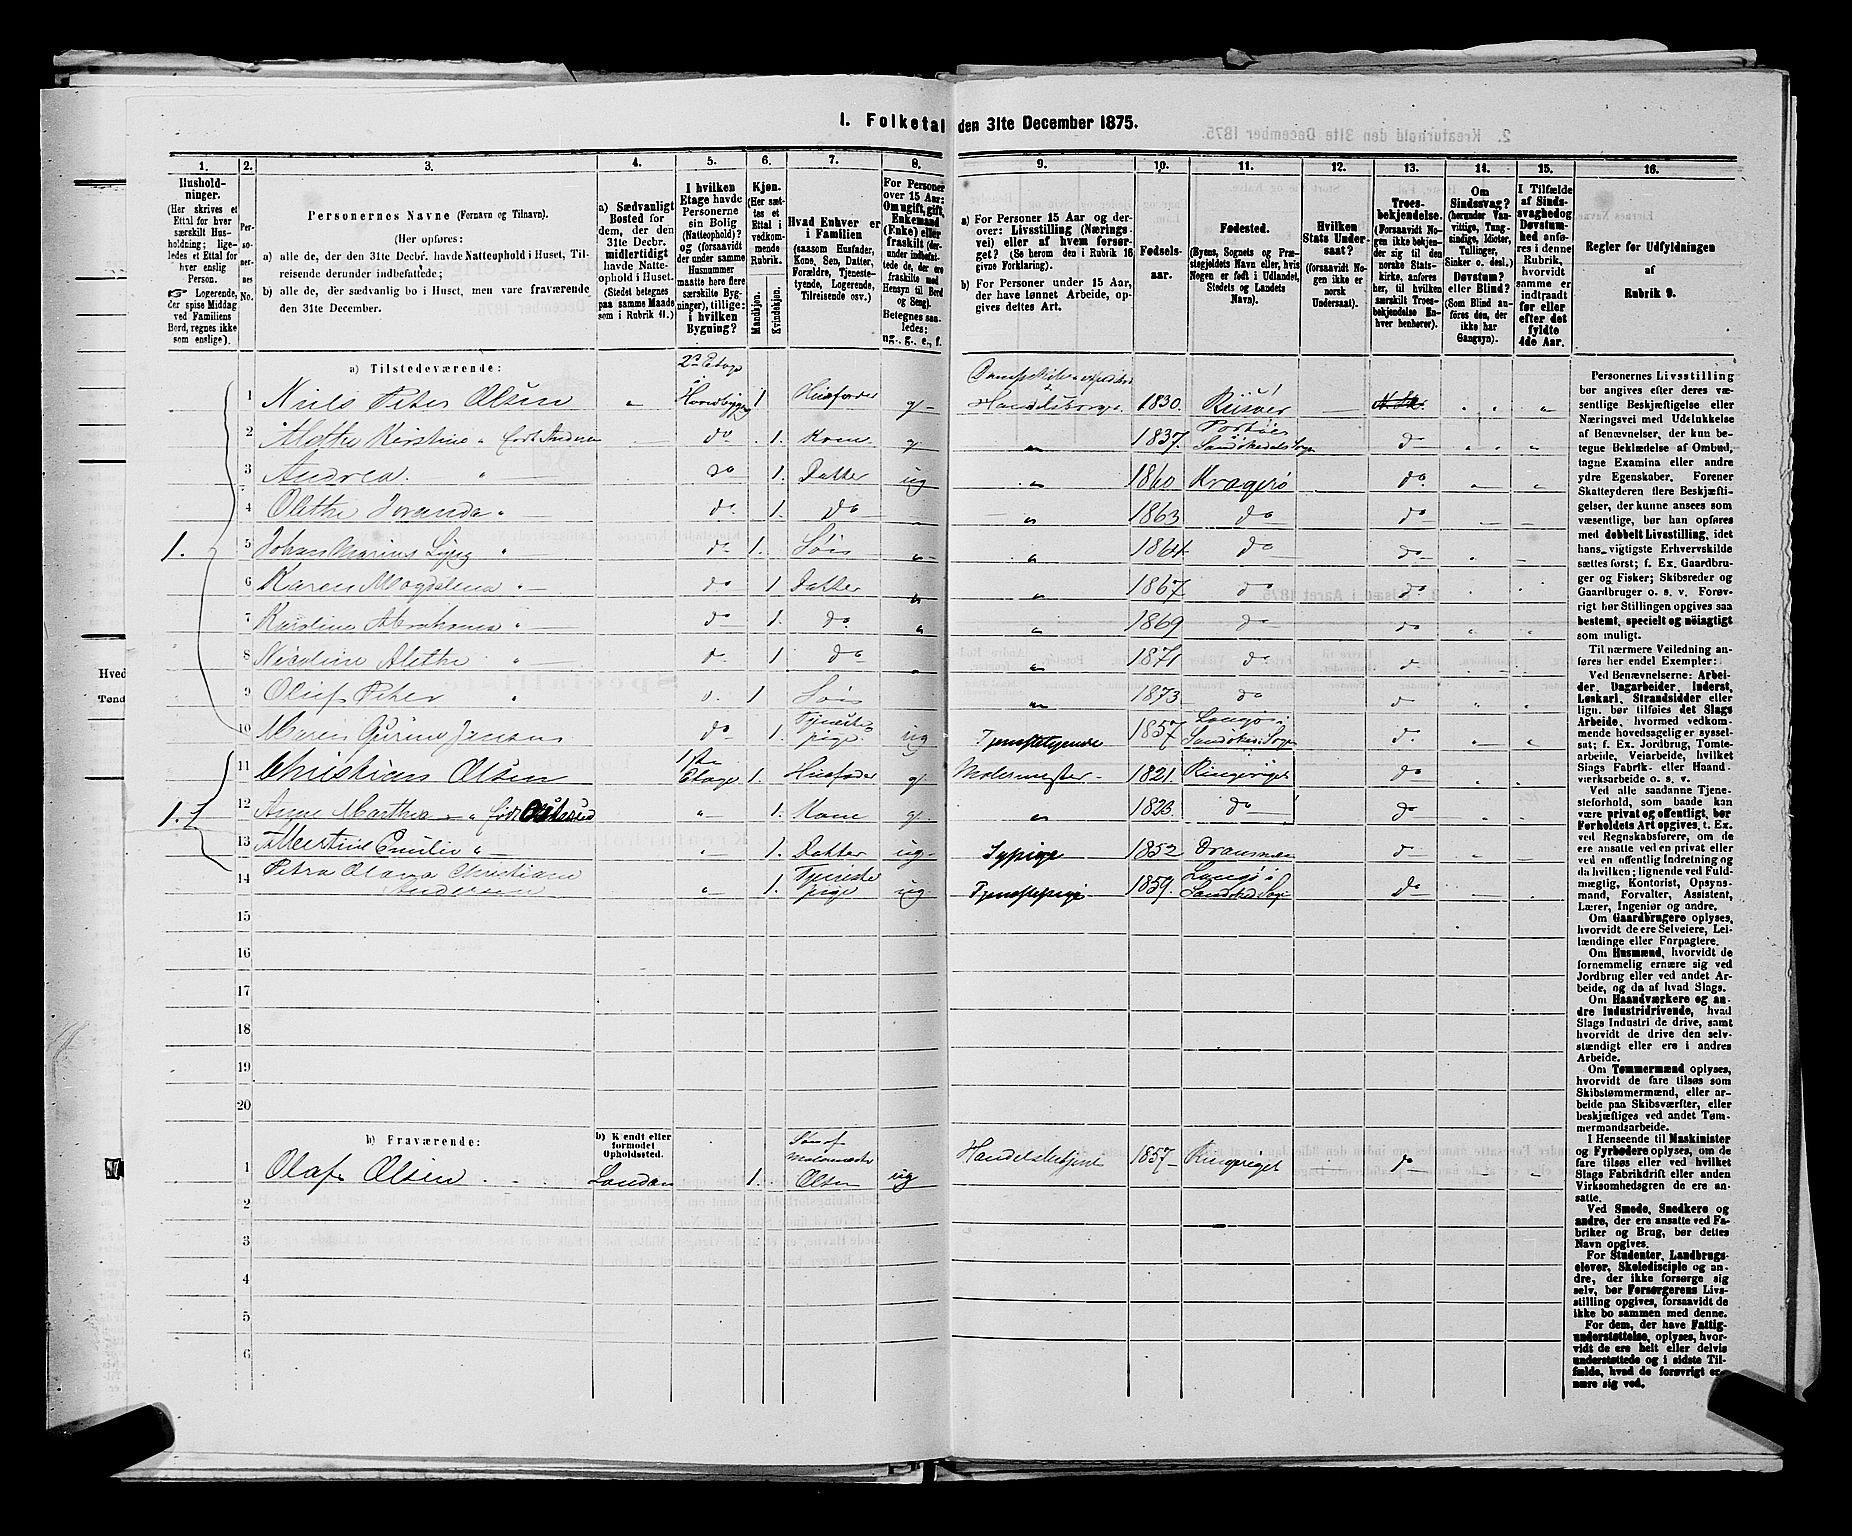 I. Folketal den 31te December 1875.
1. 2. 3. 4. 5. 6. 7. 8. 9. 10. 11. 12. 13. 14. 15. 16.
Husholdninger.
(Her skrives et
Ettal for hver
særskilt Husholdning; ligeledes
et Ettal for
hver enslig
Person.
☞ Logerende,
der spise Middag
ved Familiens
Bord, regnes ikke
som enslige).
Personernes No.
Personernes Navne (Fornavn og Tilnavn).
(Her opføres:
a) alle de, der den 31te Decbr. havde Natteophold i Huset, Tilreisende derunder indbefattede;
b) alle de, der sædvanlig bo i Huset, men vare fraværende
den 31te December.
a) Sædvanligt
Bosted for
dem, der den
31te Decbr.
midlertidigt
havde Natteophold
i Huset.
(Stedet betegnes
paa samme Maade
som i Rubrik 11.)
I hvilken
Etage havde
Personerne
sin Bolig
(Natteophold)?
og (forsaavidt
der under samme
Husnummer
maatte høre flere
særskilte Bygninger),
tillige:
i hvilken
Bygning?
Kjøn.
(Her sættes
et Ettal i
vedkommende
Rubrik.
Mandkjøn. Kvindekjøn.
Hvad Enhver er
i Familien
(saasom Husfader,
Kone, Søn, Datter,
Forældre, Tjenestetyende,
Logerende,
Tilreisende osv.)
For Personer
over 15 Aar:
Om ugift, gift,
Enkemand
(Enke) eller
fraskilt (derunder
indbefattede
de, der ere
fraskilte med
Hensyn til Bord
og Seng).
Betegnes saaledes:
ug., g., e., f.
a) For Personer 15 Aar og derover:
Livsstilling (Næringsvei)
eller af hvem forsørget?
(Se herom den i Rubrik 16
givne Forklaring).
b) For Personer under 15 Aar,
der have lønnet Arbeide, opgives
dettes Art.
Fødselsaar.
Fødested.
(Byens, Sognets og Præstegjeldets
Navn eller, hvis
Nogen er født i Udlandet,
Stedets og Landets
Navn).
Hvilken
Stats Undersaat?
(forsaavidt Nogen
ikke er
norsk
Undersaat).
Troesbekjendelse.
(Forsaavidt Nogen
ikke bekjender
sig til den
norske Statskirke,
anføres
her, til hvilken
særskilt Troesbekjendelse
Enhver henhører).
Om
Sindssvag?
(herunder Vanvittige,
Tungsindige,
Idioter,
Tullinger,
Sinker o. desl.)
Døvstum?
eller Blind?
(Som Blind anføres
den, der
ikke har
Gangsyn).
I Tilfælde
af Sindssvaghed
og
Døvstumhed
anføres
i denne
Rubrik,
hvorvidt
samme er
indtraadt
før eller
efter det
fyldte
4de Aar.
Regler for Udfyldningen
af
Rubrik 9.
a) Tilstedeværende:
1 Niels Peter Olsen " 1 Husfader g 1830. Risøer
2 Alethe Kirstine " født do 1. Kone g " 1837. do
3 Andrea " do 1. Datter ug " 1860 Kragerø do
4 do 1. do " 1863 do do
1. 5 Johan Marius " do 1. Søn " " 1864 do do
6 Karen Magdalena " do 1 Datter " " 1867 do do
7 Karoline " do 1. do " " 1869 do do
8 Nicoline Alethe " do 1 do " 1871 do do
9 Peter " 1 Søn " 1873 do do
10 Maren Jensen do 1. Tjenestepige ug Tjenestetyende 1857 do
11 Christian Olsen 1ste Etage 1. Husfader g Malermester 1821. Ringeriget do
1. 12 Anne Marthea " født " 1. Kone g " 1823. do do
13 Albertine Emilie " " 1. Datter ug. Sypige 1852 Drammen do
14 Petra Olava Christiane
Andersen " 1. Tjenestepige ug. Tjenestepige 1859. do
15
16
17
18
19
20
b) Fraværende:
b) Kendt eller
formodet
Opholdssted.
1 Olaf Olsen London 1. Søn af Malermester Olsen ug Handelsbetjent 1857 Ringeriget do
2
3
4
5
6
Personernes Livsstilling
bør angives efter deres væsentlige
Beskjæftigelse eller
Næringsvei med Udelukkelse
af Benævnelser, der kun betegne
Beklædelse af Ombud,
tagne Examina eller andre
ydre Egenskaber. Forener
Skatteyderen flere Beskjæftigelser,
der kunne ansees som
væsentlige, bør han opføres
med dobbelt Livsstilling, idet
hans vigtigste Erhvervskilde
sættes først; f. Ex. Gaardbruger
og Fisker; Skibsreder og
Gaardbruger o. s. v. Forøvrigt
bør Stillingen opgives saa
bestemt, specielt og nøiagtigt
som muligt.
Til nærmere Veiledning anføres
her endel Exempler:
Ved Benævnelserne: Arbeider,
Dagarbeider, Inderst,
Løskarl, Strandsidder eller
lign. bør tilføies det Slags
Arbeide, hvormed vedkommende
hovedsagelig er sysselsat;
f. Ex. Jordbrug, Tomtearbeide,
Veiarbeide, hvilket
Slags Fabrik- eller Haandværksarbeide
o. s. v.
Ved alle saadanne Tjenesteforhold,
som baade kan
være privat og offentligt, bør
Forholdets Art opgives, t. Ex.
ved Regnskabsførere, om de
ere ansatte ved en privat eller
ved en offentlig Indretning og
da hvilken; ligeledes ved Fuldmægtig,
Kontorist, Opsynsmand,
Forvalter, Assistent,
Lærer, Ingeniør og andre.
Om Gaardbrugere oplyses,
hvorvidt de ere Selveiere, Leilændinge
eller Forpagtere.
Om Husmænd, hvorvidt de
fornemmelig ernære sig ved
Jordbrug eller ved andet Arbeide,
og da af hvad Slags.
Om Haandværkere og andre
Industridrivende, hvad
Slags Industri de drive, samt
hvorvidt de drive den selvstændigt
eller ere i andres
Arbeide.
Om Tømmermænd oplyses,
hvorvidt de fare tilsøs som
Skibstømmermænd, eller arbeide
paa Skibsværfter, eller
beskjæftiges ved andet Tømmermandsarbeide.
I Henseende til Maskinister
og Fyrbødere oplyses, om de
fare tilsøs eller ved hvilket
Slags Fabrikdrift eller anden
Virksomhedsgren de ere ansatte.
Ved Smede, Snedkere og
andre, der ere ansatte ved Fabriker
og Brug, bør dettes
Navn opgives.
For Studenter, Landbrugselever,
Skoledisciple og andre,
der ikke forsørge sig
selv, bør Forsørgerens Livsstilling
opgives, forsaavidt de
ikke bo sammen med denne.
For dem, der have Fattigunderstøttelse,
oplyses, hvorvidt
de ere helt eller delvis
understøttede og i sidste Tilfælde,
hvad de forøvrigt ernære
sig ved.